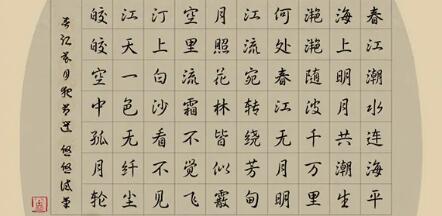 春江潮水连海平
海上明月共潮生
滟滟随波千万里
何处春江无月明
江流宛转绕芳甸
月照花林皆似霰
空里流霜不觉飞
汀上白沙看不见
江天一色无纤尘
皎皎空中孤月轮
春江花月夜节选